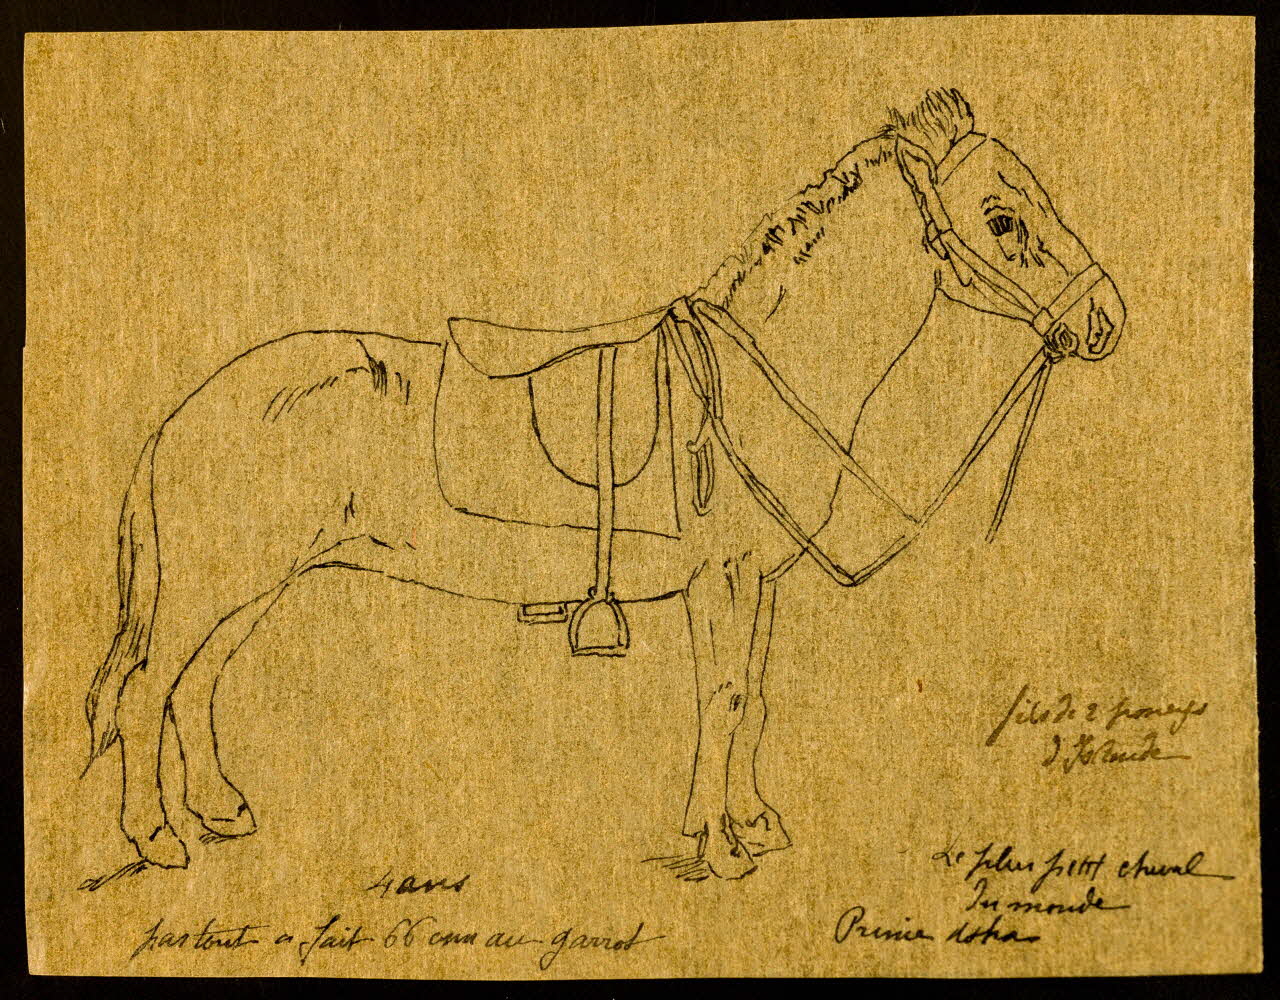 fils de 2 poneys
d'Islande
Le plus petit cheval
du monde
4 ans
pas tout à fait 66 cm au garrot
Prince